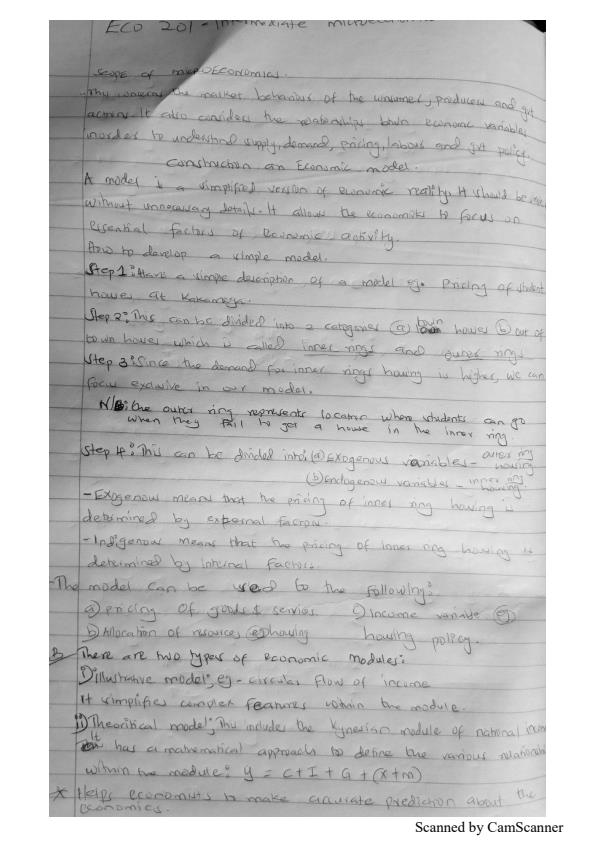 ECO 201 - Intermediate microeconomics
Scope of microeconomics.
This concerns the market behaviour of the consumer, producers and gvt
actions. It also considers the relationships btwn economic variables
inorder to understand supply, demand, pricing, labour and gvt policy.
Construction an Economic model.
A model is a simplified version of economic reality. It should be
without unnecessary details. It allows the economists to focus on
essential factors of economic activity.
How to develop a simple model.
Step 1: Have a simple description of a model eg. Pricing of student
houses at Kakamega.
Step 2: This can be divided into 2 categories (a) town houses (b) out of
town houses which is called inner rings and outer rings
Step 3: Since the demand for inner rings housing is higher, we can
focus exclusive in our model.
N/B: the outer ring represents location where students can go
when they fail to get a house in the inner ring.
Step 4: This can be divided into: (a) Exogenous variables - outer ring housing
(b) Endogenous variables - inner ring housing
- Exogenous means that the pricing of inner ring housing is
determined by external factors.
- Indigenous means that the pricing of inner ring housing is
determined by internal factors.
- The model can be used to the following:
a) pricing of goods & services c) Income variable eg
b) Allocation of resources eg housing housing policy.
There are two types of economic modules:
i) Illustrative model; eg - circular flow of income
It simplifies complex features within the module.
ii) Theoritical model; This includes the kynesian module of national income
It has a mathematical approach to define the various relationship
within the module: Y = C + I + G + (X + m)
* Helps economists to make accurate prediction about the
economics.
Scanned by CamScanner